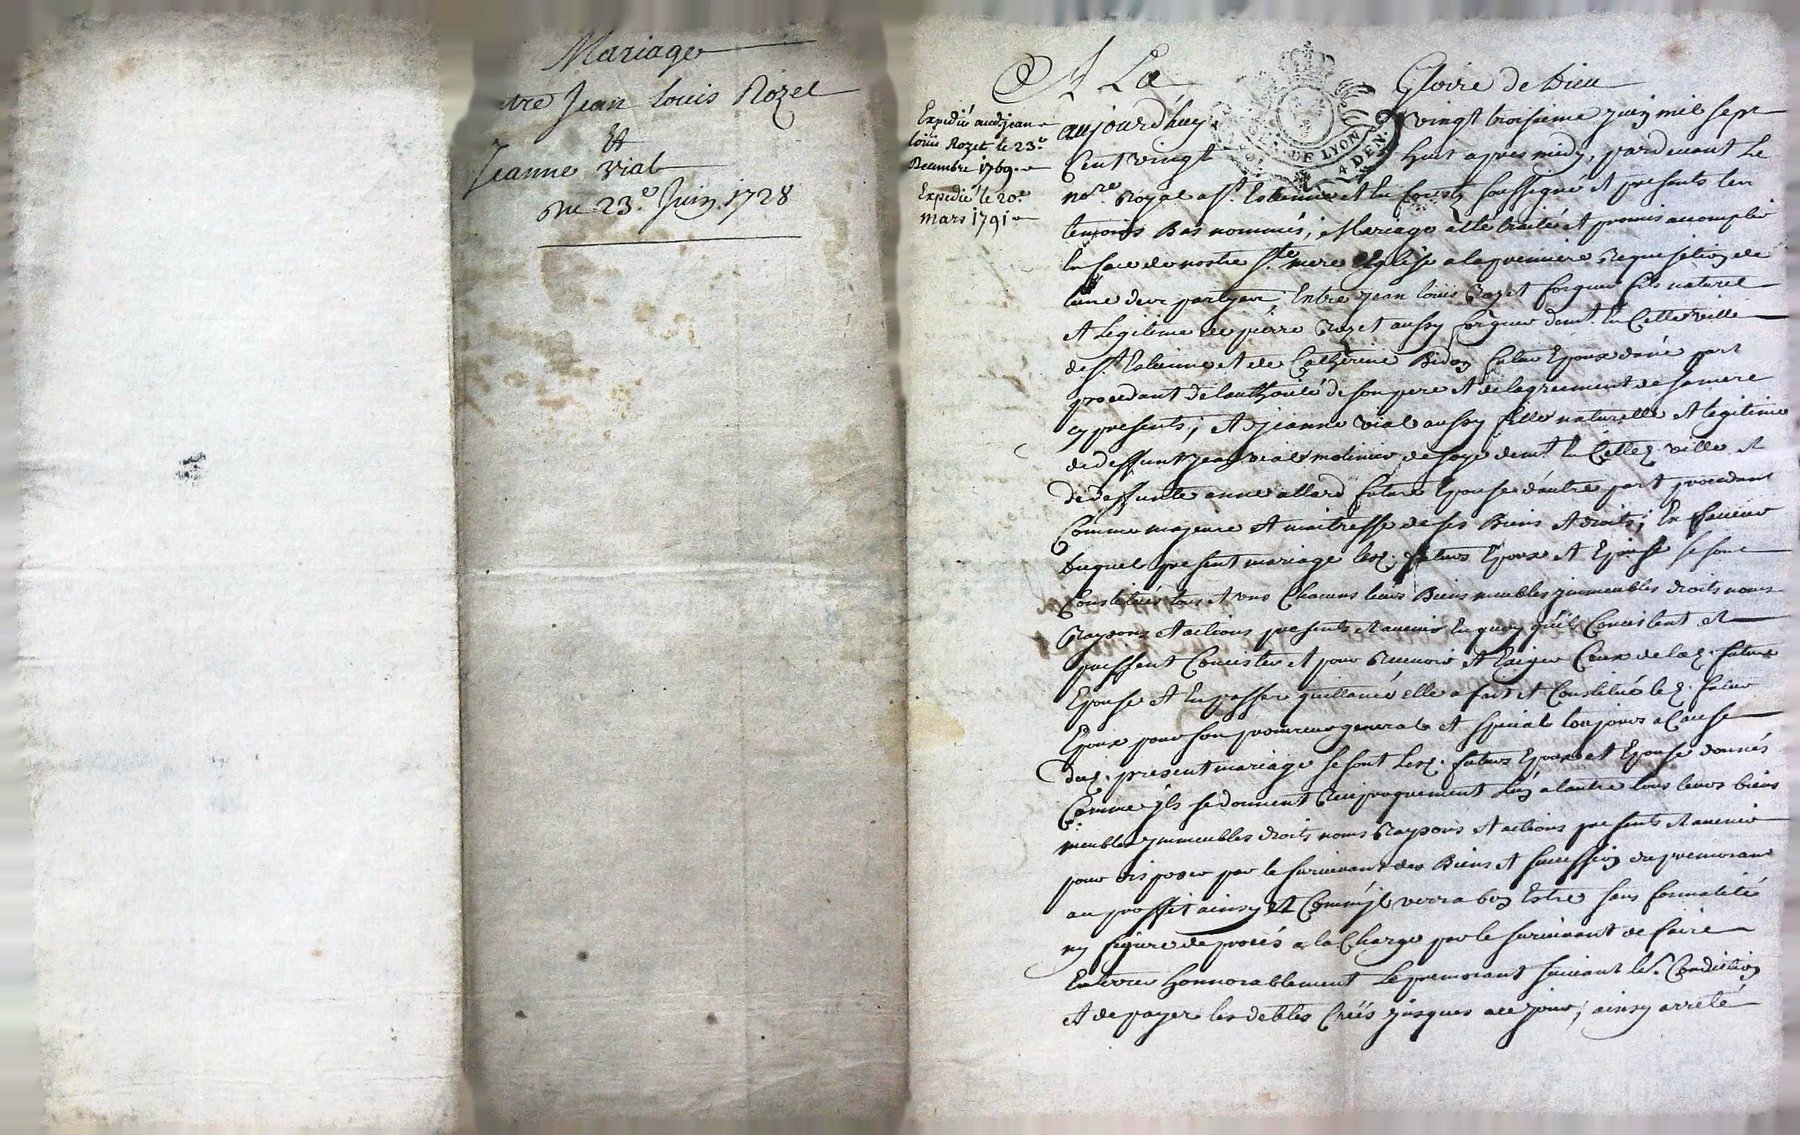 Mariage
ntre Jean Louis Rozet
Et
Jeanne Vial
Du 23.e Juin 1728
Expedié aud. jean
louis Rozet le 23.e
Decembre 1769.
Expedié le 20.e
mars 1791
A La Gloire de Dieu
aujourd'huy vingt troisieme juin mil sept
Cent vingt huit apres midy, pardevant Le
DE LYON
4 DEN.
no.re Royal a St. Estienne et En forestz soussigné et presents les
temoins Bas nommés, Mariage a esté traité et promis accomplir
En face de nostre Ste mere Eglise a la premiere Requisition de
lune des partyes; Entre jean louis Rozet forgeur fils naturel
et legitime de pierre Rozet aussy forgeur demt. En Cette ville
de St. Estienne et de Catherine Bidon futur Epoux d'une part
procedant de l'authorité de son pere et de lagrement de sa mere
cy presents; et jeanne vial aussy fille naturelle et legitime
de deffunt jean vial molinier de soye demt. En Cetted. ville et
de deffunte anne allard future Epouse d'autre part procedant
Comme majeure et maitresse de ses Biens et droits; En faveur
duquel present mariage lesd. futurs Epoux et Epouse se sont
Constitués tous et uns Chacuns leurs Biens meubles immeubles droits noms
Raysons et actions presents et avenir En quoy qu'ils Concistent et
puissent Concister et pour Recevoir et Exiger Ceux de lad. future
Epouse et En passer quittance elle a fait et Constitué led. futur
Epoux pour son procureur general et special toujours a Cause
dud. present mariage se sont lesd. futurs Epoux et Epouse donnés
Comme jls se donnent Reciproquement Lun a lautre tous leurs biens
meubles jmmeubles droits noms Raysons et actions presents et avenir
pour disposer par le survivant des Biens et succession du premourant
au proffit ainsy et Comm'jl verra bon Estre sans formalité
ny figure de procés a la Charge par le survivant de faire
Enterrer honnorablement le premourant suivant sa Condition
et de payer les debtes Créés jusques a ce jour; ainsy arreté